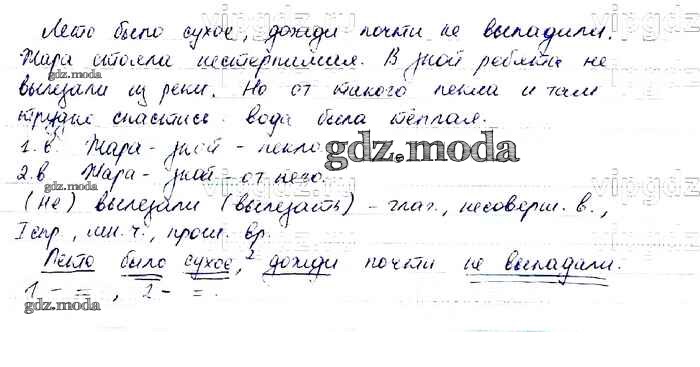 Лето было сухое, дожди почти не выпадали.
Жара стояла нестерпимая. В зной ребята не
gdz.moda
вылезали из реки. Но от такого пекла и там
трудно спастись. вода была тёплая.
1.в. Жара - зной - пекло
gdz.moda
2.в Жара - зной - от
(не) вылезали (вылезать) - глаг., несоверш. в.,
I спр., мн.ч., прош. вр.
gdz.moda
Лето было сухое, 2 дожди почти не выпадали.
1 - = , 2 - = .
gdz.moda
vipgdz
vipgdz